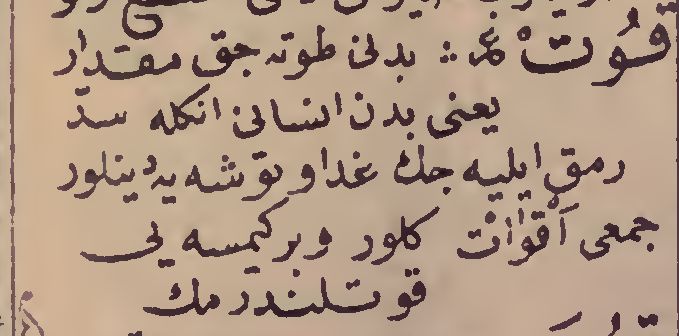 قُوتْ عر : بدنى طوته جق مقدار
يعنى بدن انسانى انكله سدّ
رمق ايليه جك غدا و توشه يه دينلور
جمعى اَقْوَاتْ كلور و بر كيمسه يى
قوتلندرمك